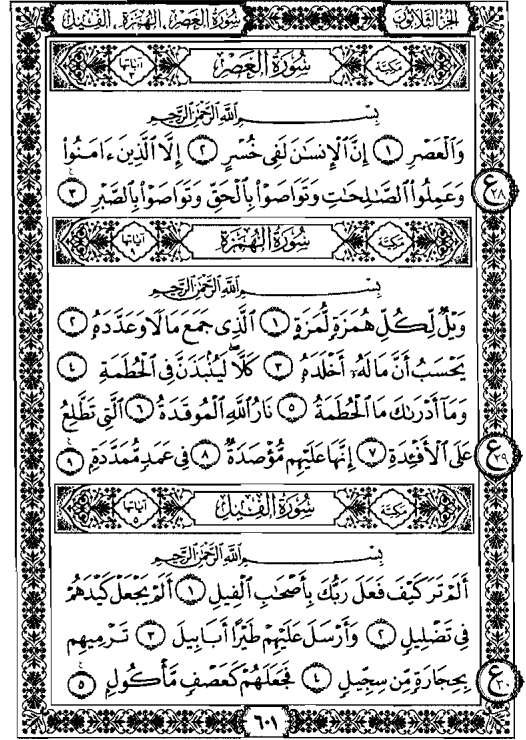 سُورَةُ العَصْر، الهُمَزَة، الفِيل
الجُزءُ الثَّلَاثُونَ
سُورَةُ العَصْرِ
مَكِّيَّة
آيَاتُهَا ٣
بِسْمِ اللَّهِ الرَّحْمَٰنِ الرَّحِيمِ
وَالْعَصْرِ ١ إِنَّ الْإِنسَانَ لَفِي خُسْرٍ ٢ إِلَّا الَّذِينَ ءَامَنُوا
وَعَمِلُوا الصَّالِحَاتِ وَتَوَاصَوْا بِالْحَقِّ وَتَوَاصَوْا بِالصَّبْرِ ٣
ع ٢٨
سُورَةُ الهُمَزَةِ
مَكِّيَّة
آيَاتُهَا ٩
بِسْمِ اللَّهِ الرَّحْمَٰنِ الرَّحِيمِ
وَيْلٌ لِّكُلِّ هُمَزَةٍ لُّمَزَةٍ ١ الَّذِي جَمَعَ مَالًا وَعَدَّدَهُ ٢
يَحْسَبُ أَنَّ مَالَهُ أَخْلَدَهُ ٣ كَلَّا لَيُنبَذَنَّ فِي الْحُطَمَةِ ٤
وَمَا أَدْرَىٰكَ مَا الْحُطَمَةُ ٥ نَارُ اللَّهِ الْمُوقَدَةُ ٦ الَّتِي تَطَّلِعُ
عَلَى الْأَفْئِدَةِ ٧ إِنَّهَا عَلَيْهِم مُّؤْصَدَةٌ ٨ فِي عَمَدٍ مُّمَدَّدَةٍ ٩
ع ٢٩
سُورَةُ الفِيلِ
مَكِّيَّة
آيَاتُهَا ٥
بِسْمِ اللَّهِ الرَّحْمَٰنِ الرَّحِيمِ
أَلَمْ تَرَ كَيْفَ فَعَلَ رَبُّكَ بِأَصْحَابِ الْفِيلِ ١ أَلَمْ يَجْعَلْ كَيْدَهُمْ
فِي تَضْلِيلٍ ٢ وَأَرْسَلَ عَلَيْهِمْ طَيْرًا أَبَابِيلَ ٣ تَرْمِيهِم
بِحِجَارَةٍ مِّن سِجِّيلٍ ٤ فَجَعَلَهُمْ كَعَصْفٍ مَّأْكُولٍ ٥
ع ٣٠
٦٠١